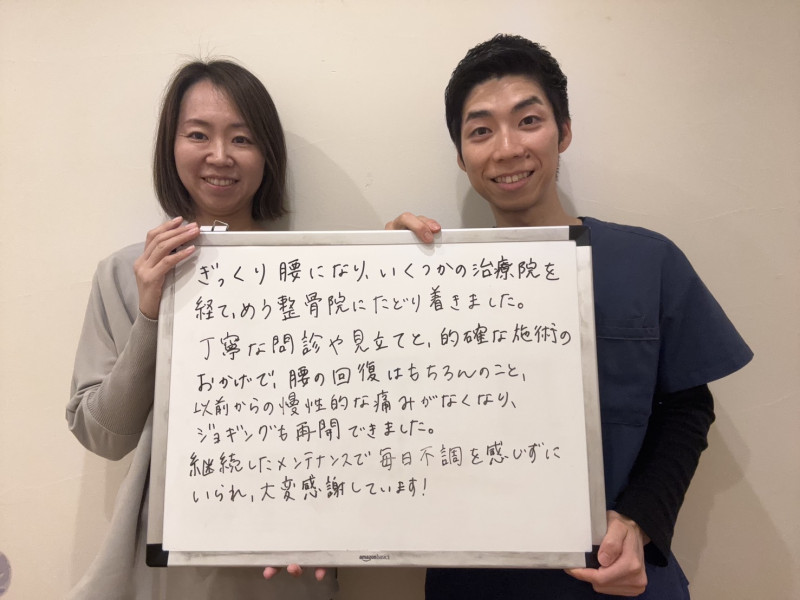 ぎっくり腰になり、いくつかの治療院を
経て、めう整骨院にたどり着きました。
丁寧な問診や見立てと、的確な施術の
おかげで、腰の回復はもちろんのこと、
以前からの慢性的な痛みがなくなり、
ジョギングも再開できました。
継続したメンテナンスで毎日不調を感じずに
いられ、大変感謝しています!
amazonbasics